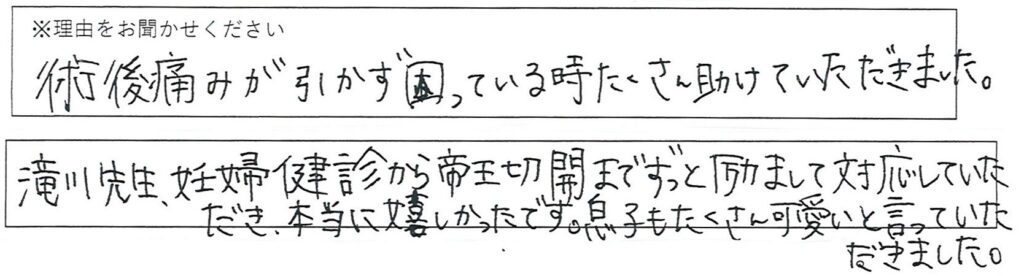 ※理由をお聞かせください
術後痛みが引かず困っている時たくさん助けていただきました。
滝川先生、妊婦健診から帝王切開までずっと励まして対応していた
だき、本当に嬉しかったです。息子もたくさん可愛いと言っていた
だきました。